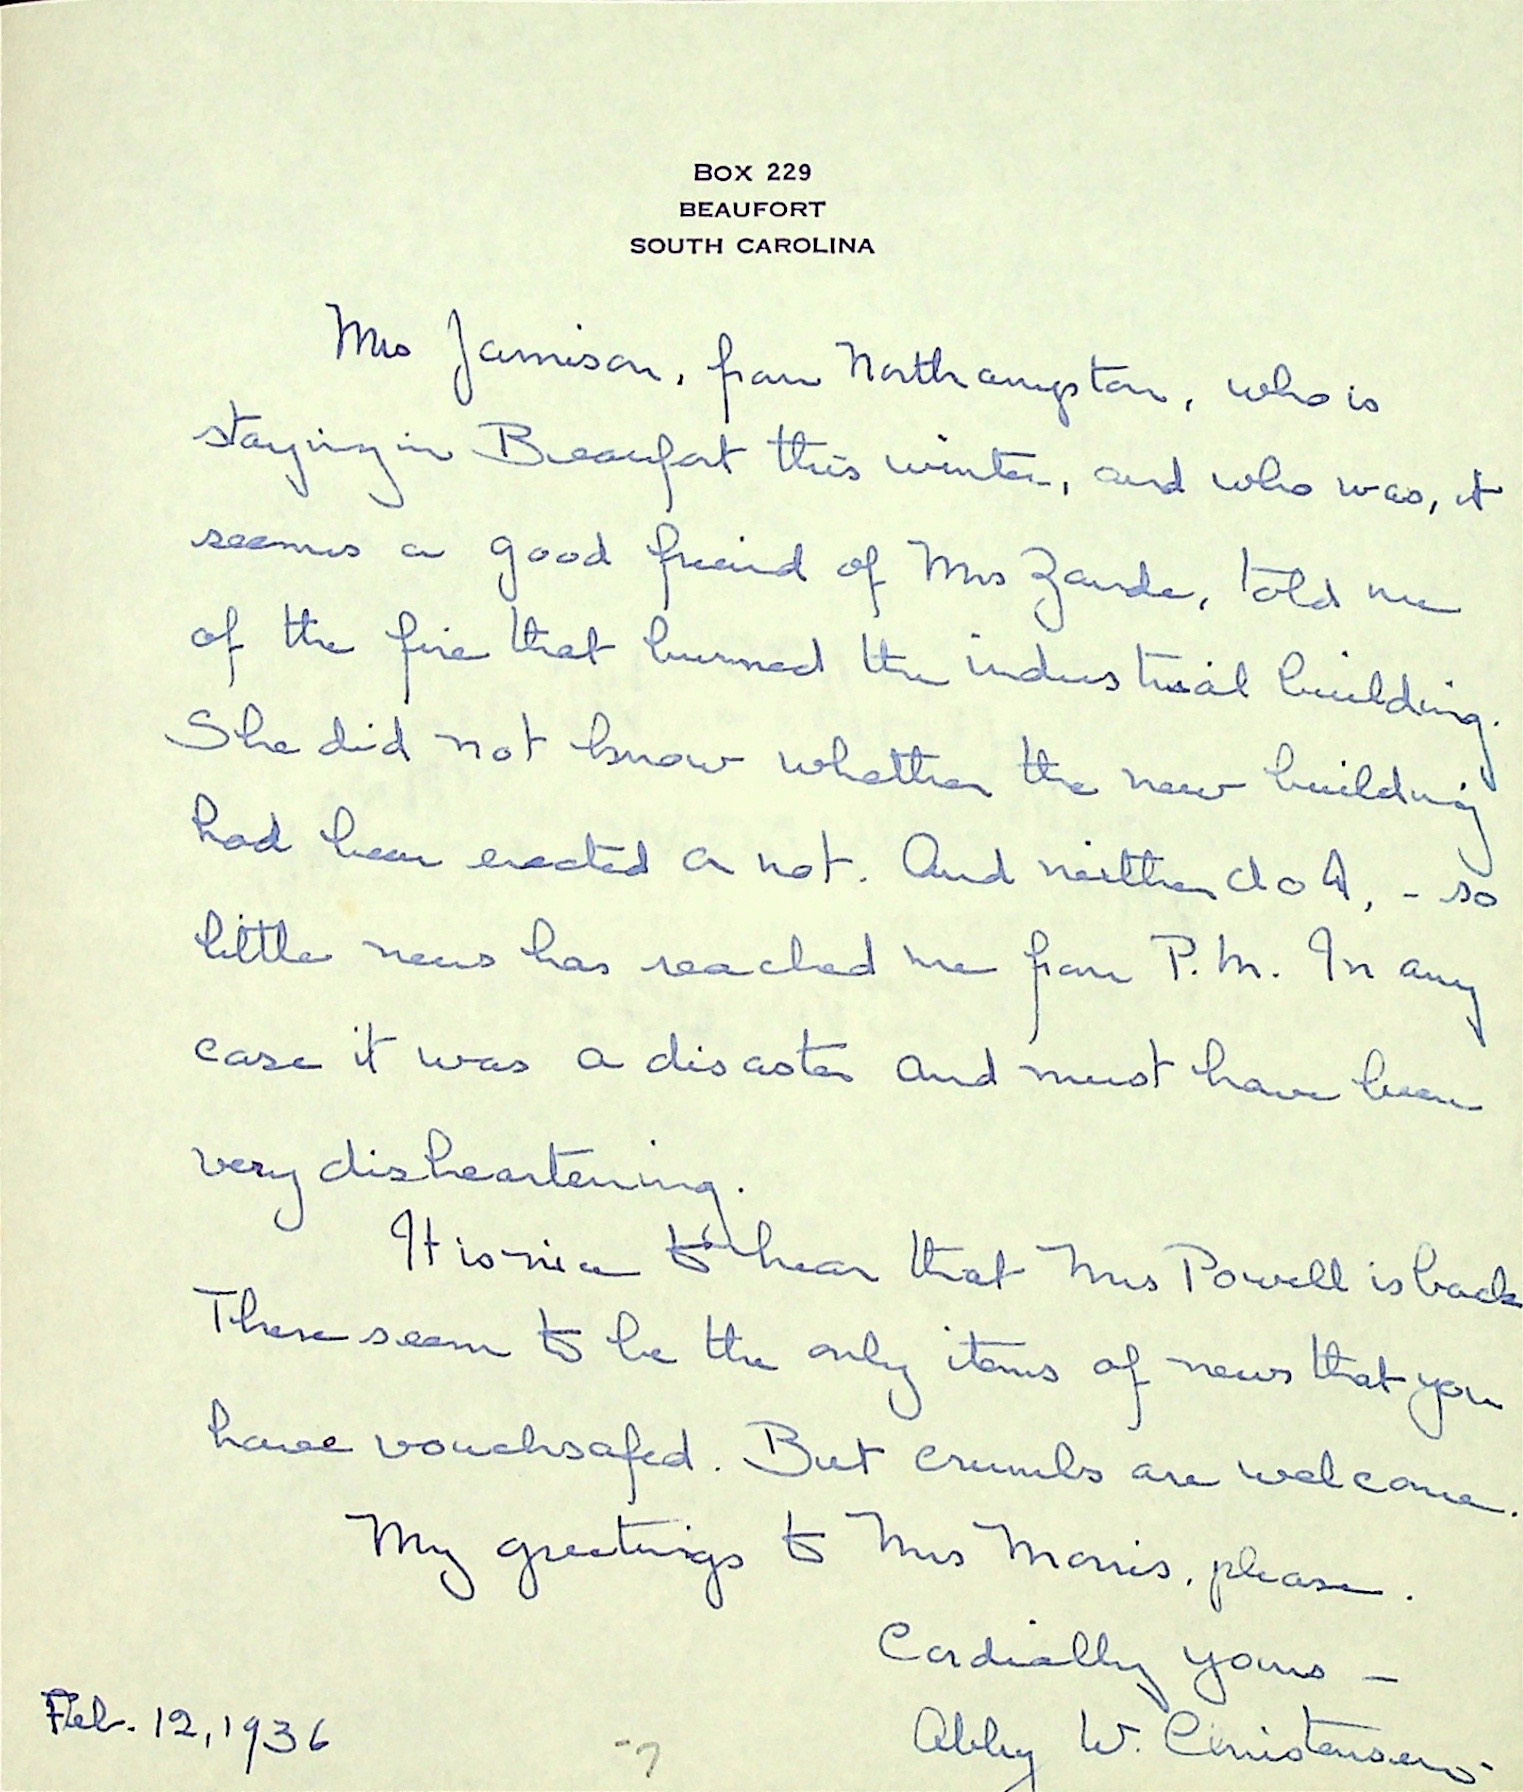 BOX 229
BEAUFORT
SOUTH CAROLINA
Mrs Jamison, from Northampton, who is
staying in Beaufort this winter, and who was, it
seems a good friend of Mrs Zande, told me
of the fire that burned the industrial building.
She did not know whether the new building
had been erected or not. And neither do I, - so
little news has reached me from P.M. In any
case it was a disaster and must have been
very disheartening.
It is nice to hear that Mrs Powell is back
These seem to be the only items of news that you
have vouchsafed. But crumbs are welcome.
My greetings to Mrs Morris, please.
Cordially yours —
Abby W. Christensen -
Feb. 12, 1936